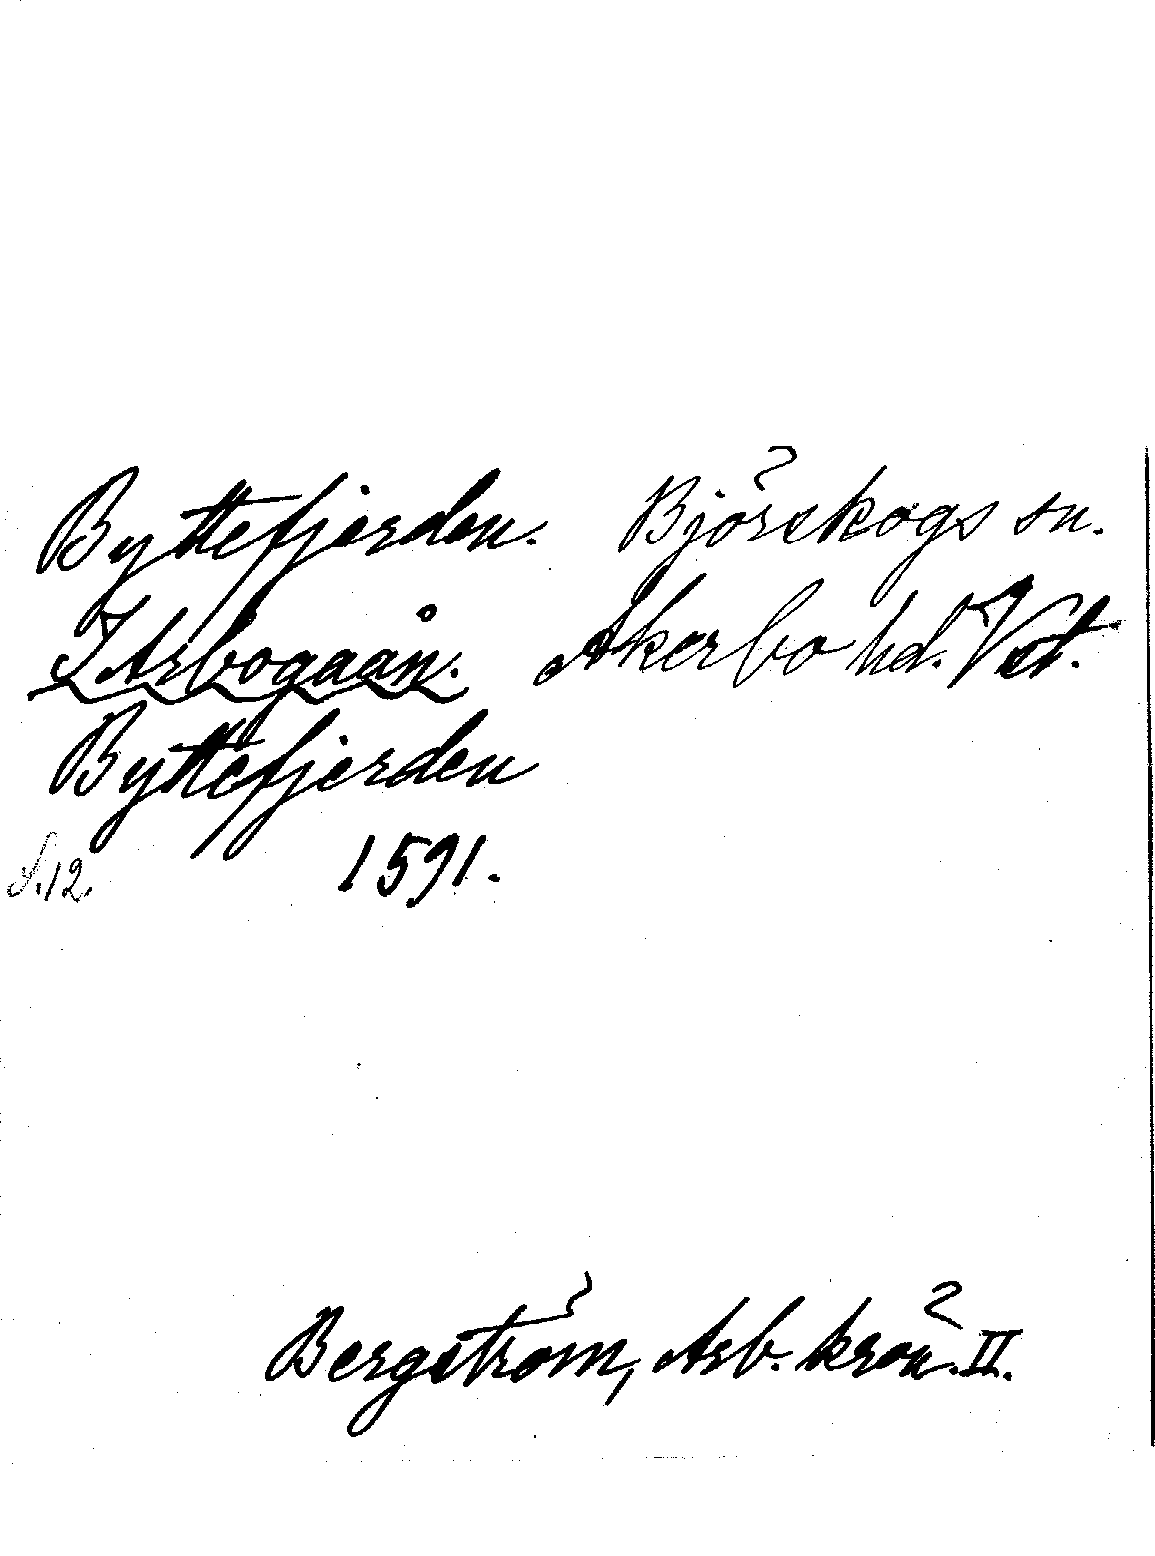 Byttefjerden. Björskogs sn.
I Arbogaån. Åkerbo hd. Vst.
Byttefjerden
S. 12. 1591.
Bergström, Arb. krön. II.